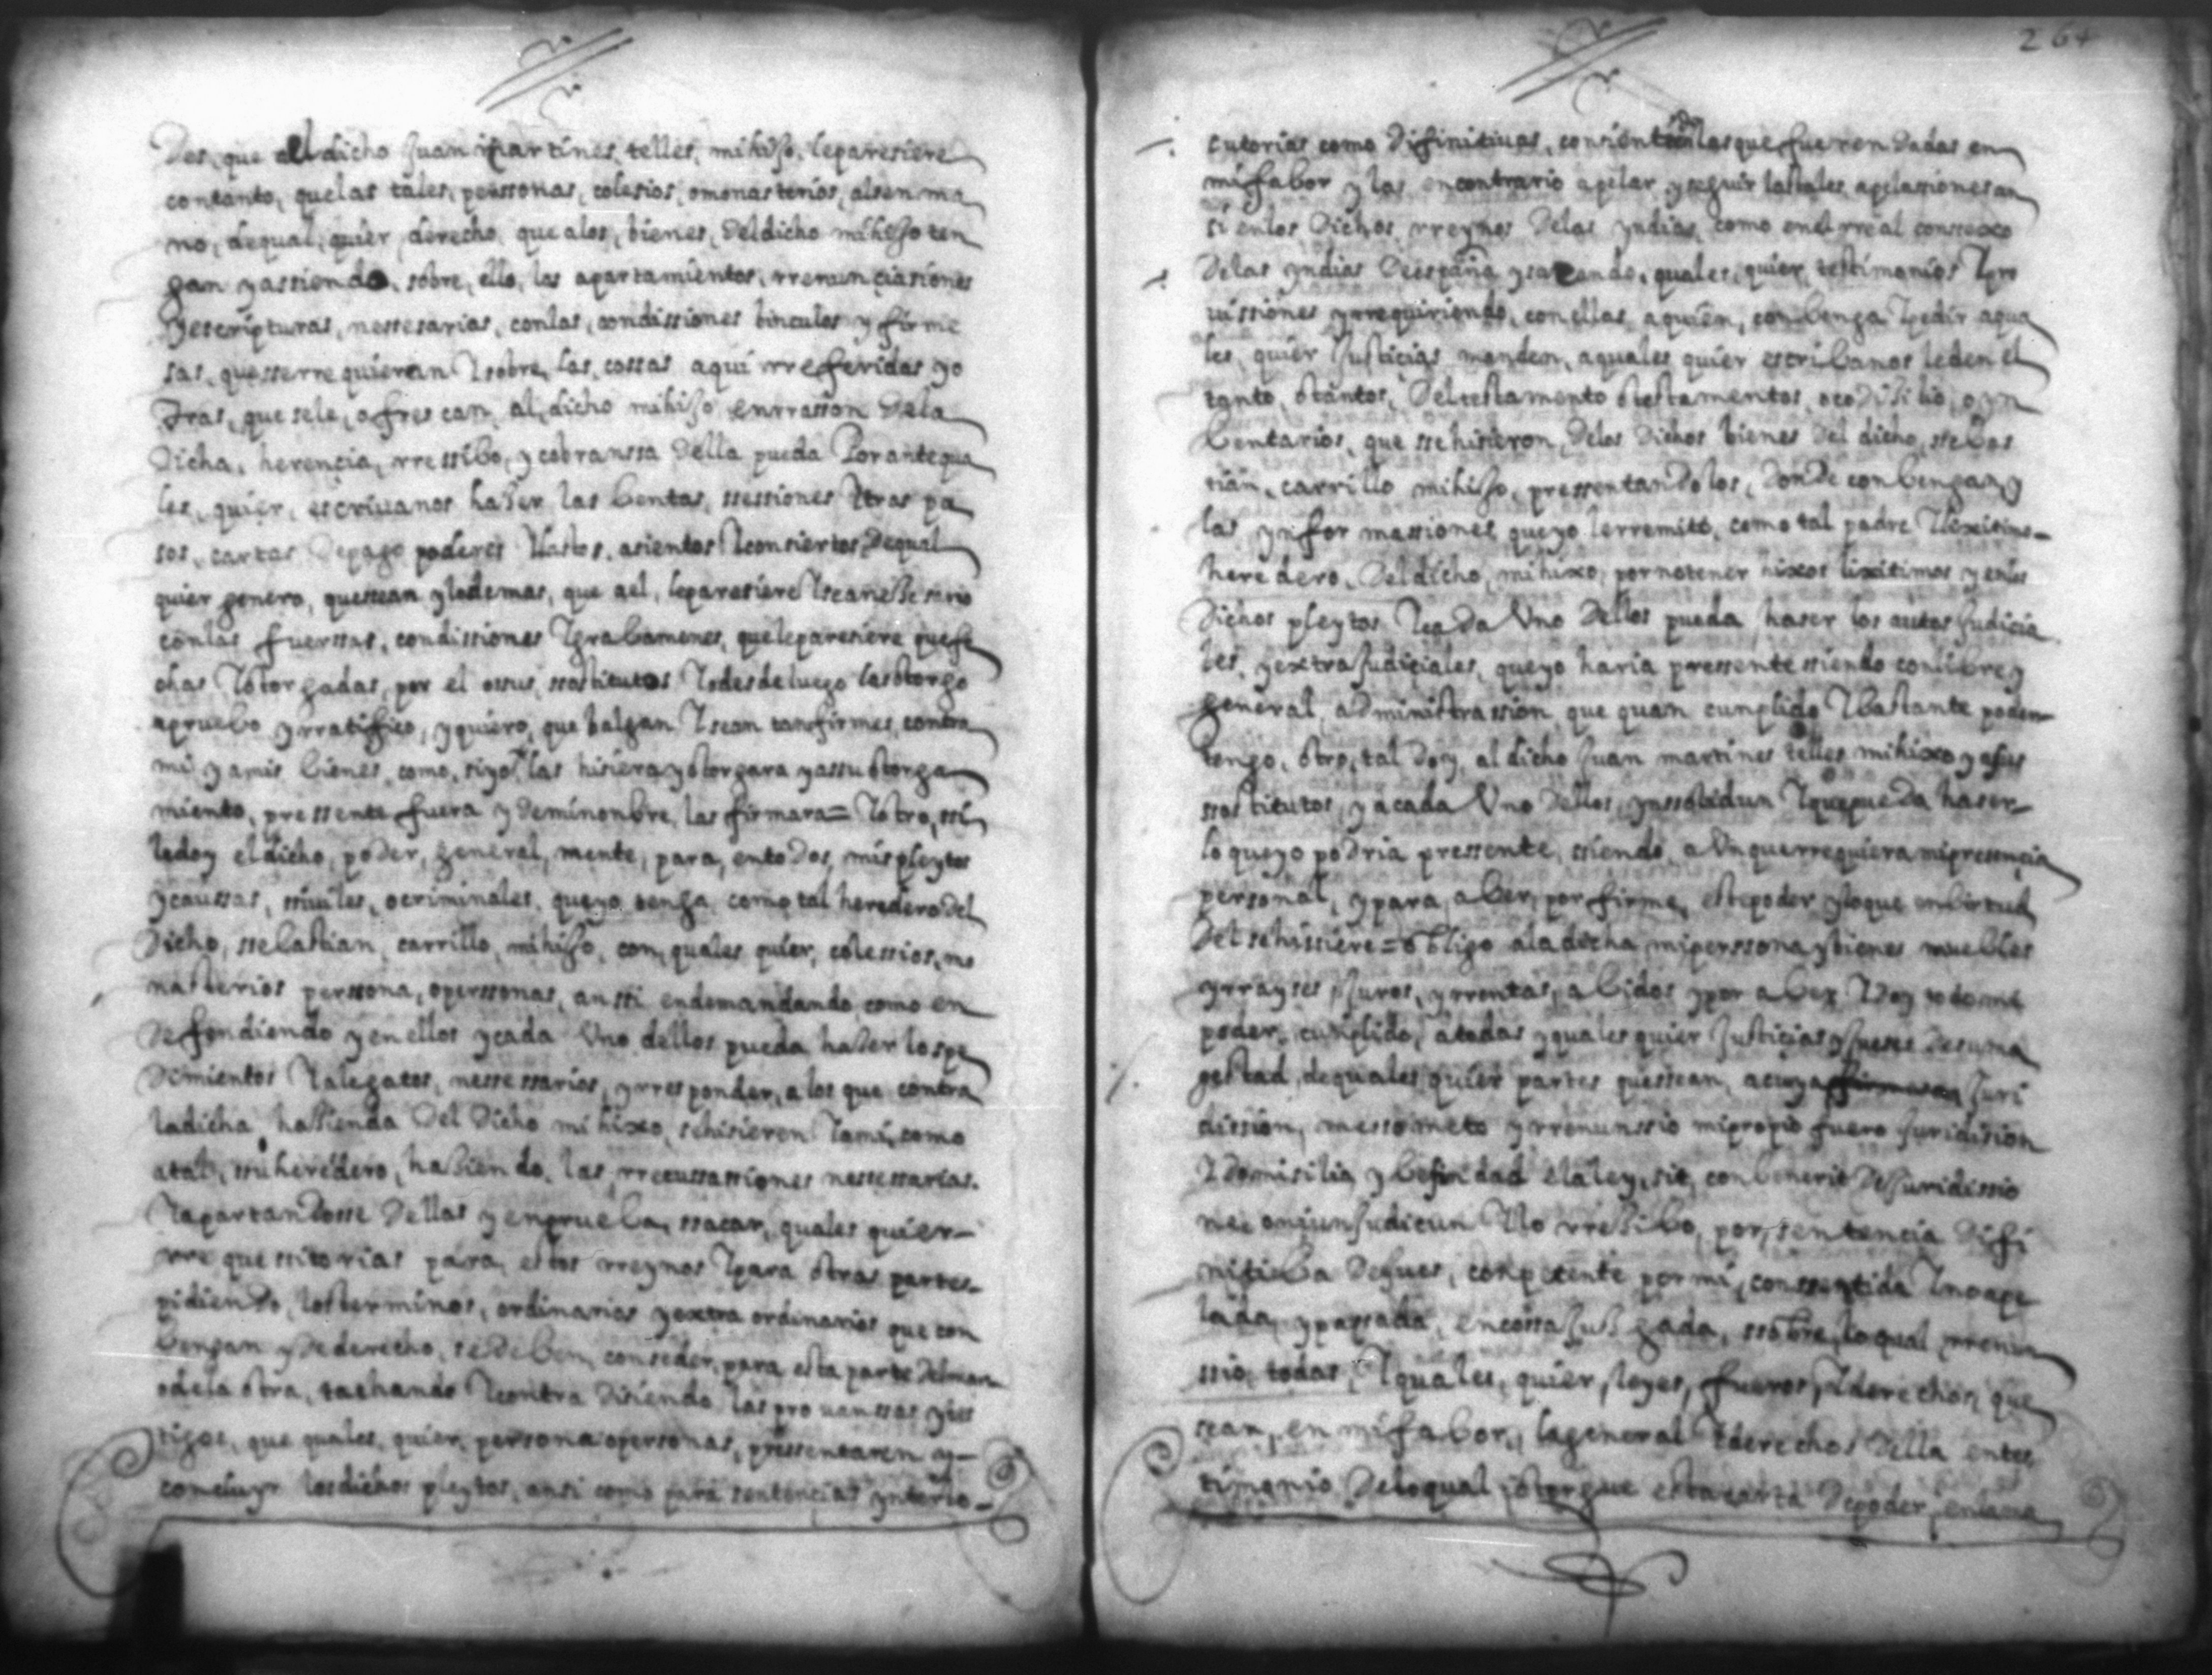 des, que al dicho Juan martines, telles, mi hijo, leparesiere
contanto, quelas tales, perssonas, colesios, omonasterios, alsen ma
no, dequal, quier, derecho, que alos, bienes, deldicho mihijo ten
gan yassiendo, sobre, ello, los apartamientos, rrenunçiasiones
yescripturas, nessesarias, conlas, condissiones binculos y firme
sas, quesserrequieran Y sobre, las, cossas aqui rrefferidas, yo
tras, que sele, ofrescan, al, dicho mihijo, enrrasion dela
dicha, herençia, rressibo, y cobranssa della pueda Porantequa
les, quier, escrivanos haser, las bentas, ssessiones Ytras pa
sos, cartas depago poderes Ylastos, asientos Yconsiertos, dequal
quier genero, quessean ylodemas, que ael, leparesiere Ysea nesesario
conlas fuerssas, condissiones Ygrabamenes, queleparesiere que fe
chas Yotorgadas, por el osus, ssostitutos Yodesdeluego lasotorgo
apruebo yrratifico, yquiero, que balgan Ysean tanfirmes, contra
mi y amis bienes, como, siyo las hisiera yotorgara yassuotorga
miento, pressente fuera ydeminonbre, las firmara = Yotro, ssi
ledoy eldicho, poder, general, mente, para, entodos, mis pleytos
ycaussas, ssiuiles, ocriminales, queyo tenga, como tal heredero del
dicho, ssebastian, carrillo, mihijo, con, quales quier, colessios, mo
nasterios perssona, operssonas, anssi endemandando como en
deffendiendo yenellos ycada Uno dellos pueda haser lospe
dimientos Yalegatos, nessessarios, yrresponder, alos que contra
ladicha, hassienda del dicho mihixo, sehisieren Yami, como
atal, ssuheredero, hasiendo, las, rrecussassiones nessessarias.
Yapartandosse dellas yenprueba, ssacar, quales quier
rrequessitorias para, estos rreynos Ypara otras partes
pidiendo, losterminos, ordinarios yextra ordinarios que con
bengan ydederecho, sedeben, conseder, para, esta parte delmar
odela otra, tachando Ycontra disiendo, las provanssas ytes
tigos, que quales, quier, persona opersonas, pressentaren y
concluyr losdichos pleytos, ansi como para sentencias ynterlo
264
cutorias como difinitiuas, consintiendo lasque fueren dadas en
mi fabor y las encontrario apelar yseguir lastales, apelassiones an
si enlos, dichos, rreynos delas yndias, como enel rreal conssexo
delas yndias deespaña ysacando, quales, quier, testimonios Ypro
uissiones yrrequiriendo, conellas, aquien, conbenga Ypedir aqua
les, quier Justicias manden, aquales quier escribanos leden el
tanto, otantos, deltestamento otestamentos, ocodisilio, oyn
bentarios, que ssehisieron, delos dichos bienes del dicho, ssebas
tian, carrillo mihijo, pressentandolos, donde conbengan, y
las ynformassiones queyo lerremito, como tal padre Ylixitimo
heredero, deldicho, mihixo, pornotener hixos lixitimos yenlos
dichos pleytos Ycada Uno dellos pueda haser los autos Judicia
les, yextraJudiçiales, queyo haria pressente ssiendo conlibre y
general, administrassion, que quan cunplido Ybastante poder
tengo, otro, tal doy, al dicho Juan martines telles mihixo yasus
ssostitutos, yacada Uno dellos, Yquepueda haser
lo queyo podria pressente, ssiendo, aUnquerrequiera mipresençia
personal, ypara, aber, por firme, estepoder yloque enbirtud
del sehissiere = obligo aladicha, miperssona ybienes muebles
yrrayses, Juros, yrrentas, abidos ypor aber Ydoy todomi
poder, cunplido, atodas yquales quier Justiçias yJueses desuma
gestad, dequales quier partes quessean, acuya Juri
dission, messometo yrrenunssio mipropio fuero Juridision
Ydomisilio y besindad elaley, sit, conbenerit de Juridissio
ne, onjunJudicun Ylo rresibo, por, sentencia difi
nitiba deJues, conpetente pormi, conssentida Ynoape
lada, ypassada, encossaJusgada, ssobre, loqual rrenun
ssio, todas, Yquales, quier, leyes, fueros, Yderechos, que
sean, en mi fabor, lageneral Yderechos della entes
timonio deloqual, otorgue estacarta depoder, enlama